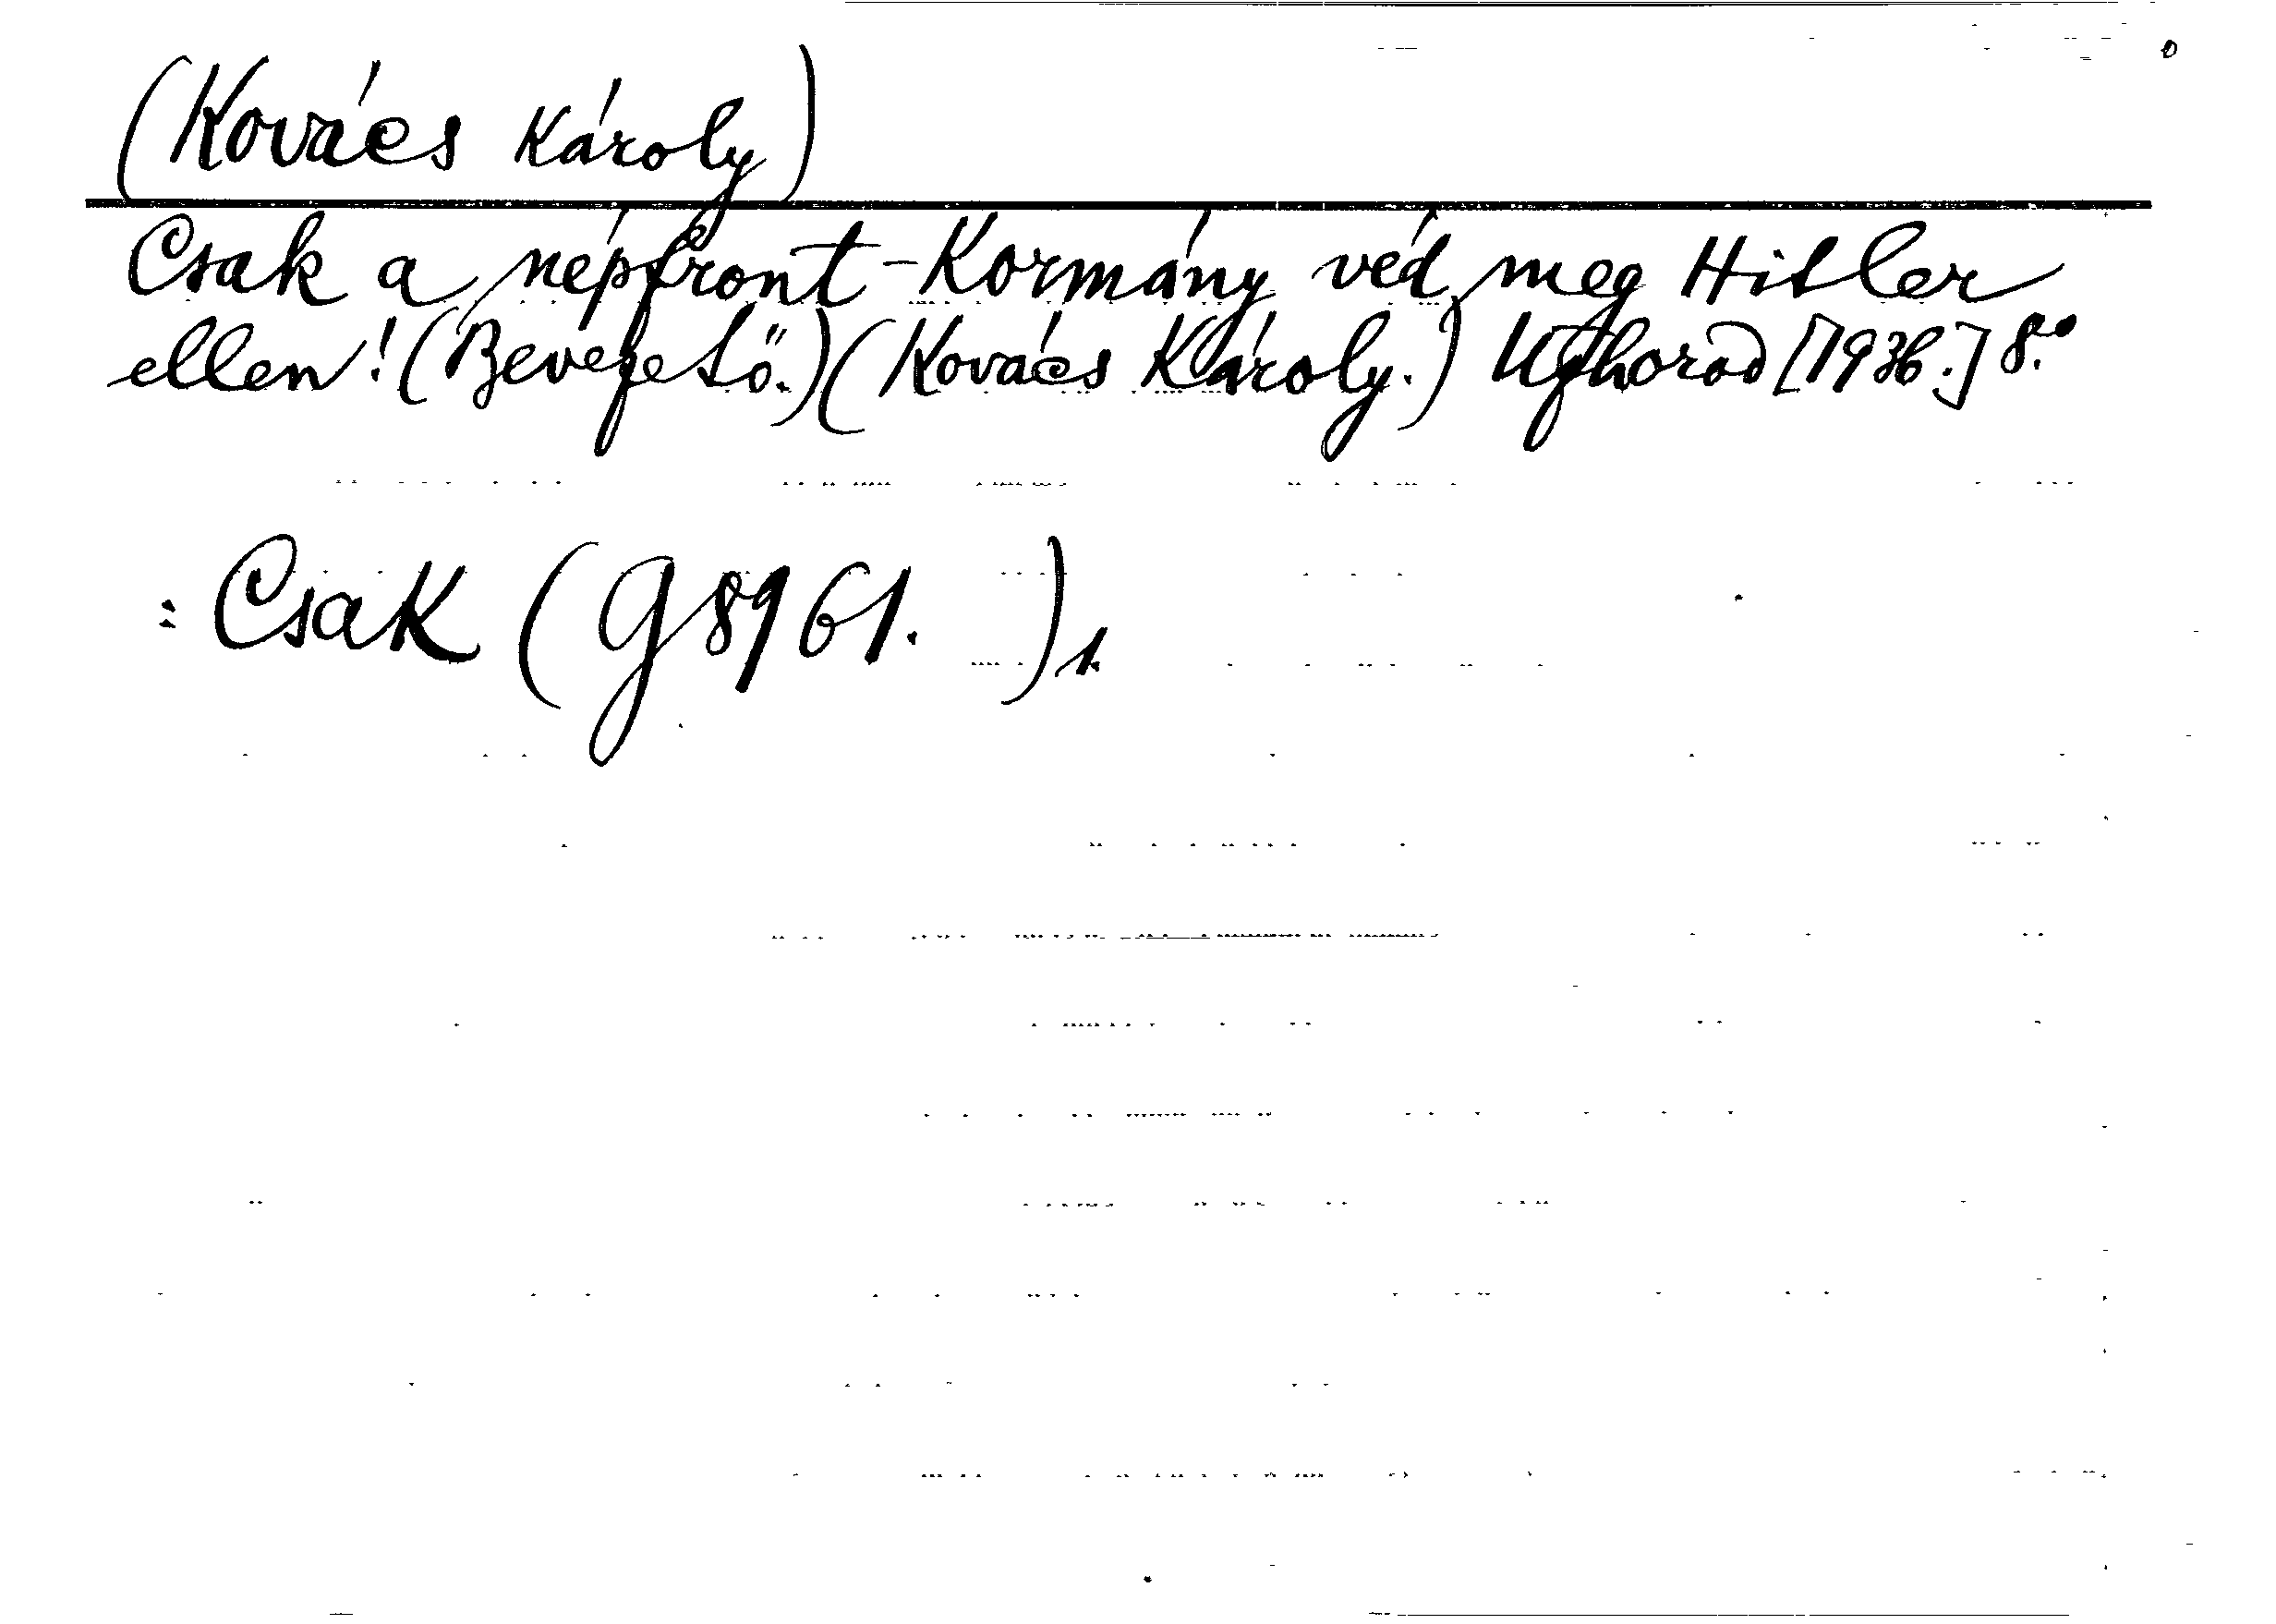 (Kovács Károly)
Csak a népfront-Kormány véd meg Hitler
ellen! (Bevezető.) (Kovács Károly.) Uzhorod [1936.] 8.°
: Csak (G 8961. ) 1.